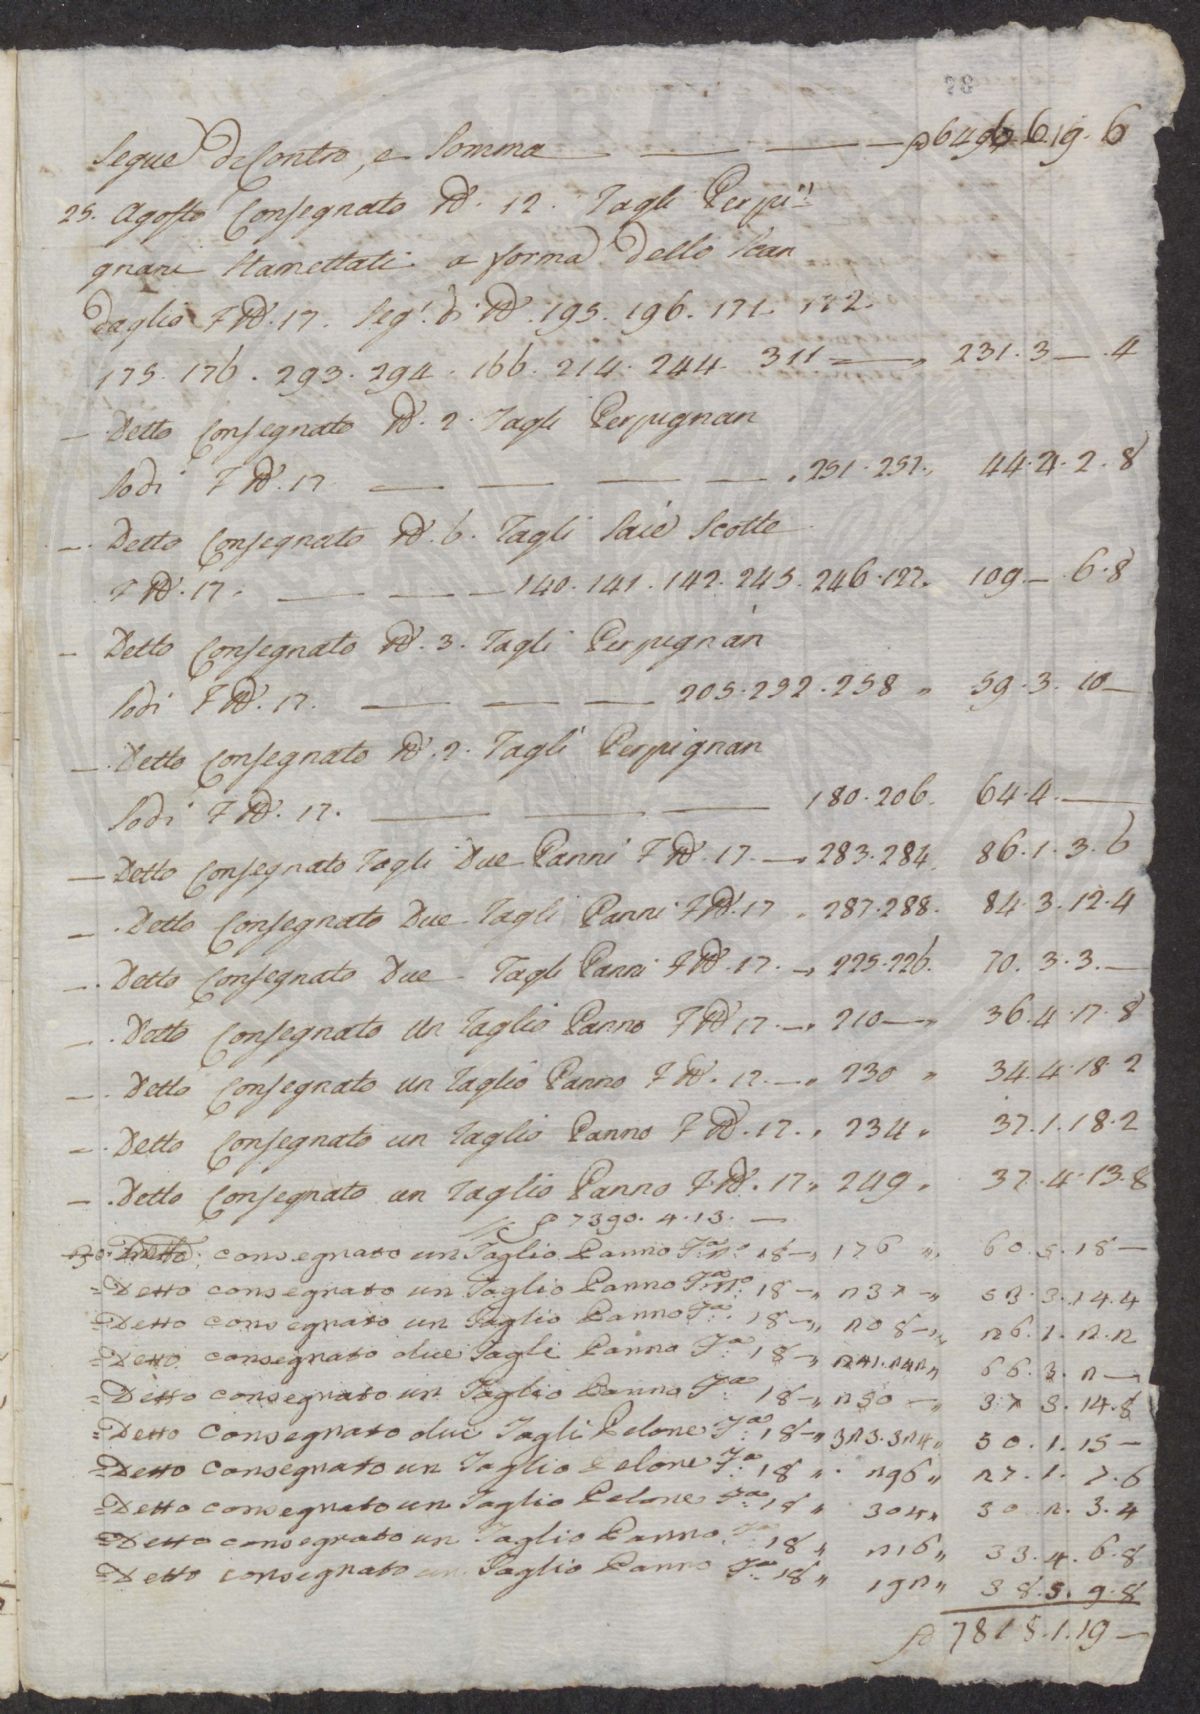 Segue di Contro, e Somma — — — 6496.6.19.6
25. Agosto Consegnato N. 12. Tagli Perpi=
gnani Stamettati a forma dello Scan
daglio F N. 17. Seg.ti di N. 195. 196. 171. 172.
175. 176. 293. 294. 166. 214. 244. 311 — „ 231.3—.4
— Detto Consegnato N. 2. Tagli Perpignan
Sodi F N. 17 — — — — „ 251. 252. „ 44.4.2.8
— Detto Consegnato N. 6. Tagli Saie Scotte
F N. 17. — — — 140. 141. 142. 245. 246. 122. 109—.6.8
— Detto Consegnato N. 3. Tagli Perpignan
Sodi F N. 17. — — — 205. 252. 258 „ 59.3.10—
— Detto Consegnato N. 2. Tagli Perpignan
Sodi F N. 17. — — — 180. 206. 64.4.—
— Detto Consegnato Tagli Due Panni F N. 17. — 283. 284. 86.1.3.6
— Detto Consegnato Due Tagli Panni F N. 17 „ 287. 288. 84.3.12.4
— Detto Consegnato Due Tagli Panni F N. 17. — 225. 226. 70.3.3.—
— Detto Consegnato Un Taglio Panno F N. 17. — „ 210 — „ 36.4.17.8
— Detto Consegnato un Taglio Panno F N. 17. — „ 230 „ 34.4.18.2
— Detto Consegnato un Taglio Panno F N. 17. „ 234 „ 37.1.18.2
— Detto Consegnato un Taglio Panno F. N. 17 „ 249 „ 37.4.13.8
7390.4.13.—
30. consegnato un Taglio Panno F.a n.o 18 — „ 176 „ 60.5.18—
= Detto consegnato un Taglio Panno F.a n.o 18 — „ 237 — „ 53.3.14.4
= Detto consegnato un Taglio Panno F.a 18 — „ 208 — „ 26.1.2.2
= Detto consegnato due Tagli Panno F.a 18 — „ 241. 242 „ 66.3.2—
= Detto consegnato un Taglio Panno F.a 18 — „ 250 — „ 37.3.14.8
= Detto consegnato due Tagli Pelone F.a 18 — „ 323. 324 „ 50.1.15—
= Detto consegnato un Taglio Pelone F.a 18 „ 296 „ 27.1.7.6
= Detto consegnato un Taglio Pelone F.a 18 „ 304 „ 30.2.3.4
= Detto consegnato un Taglio Panno F.a 18 „ 216 „ 33.4.6.8
= Detto consegnato un Taglio Panno F.a 18 „ 192 „ 38.5.9.8
7815.1.19—